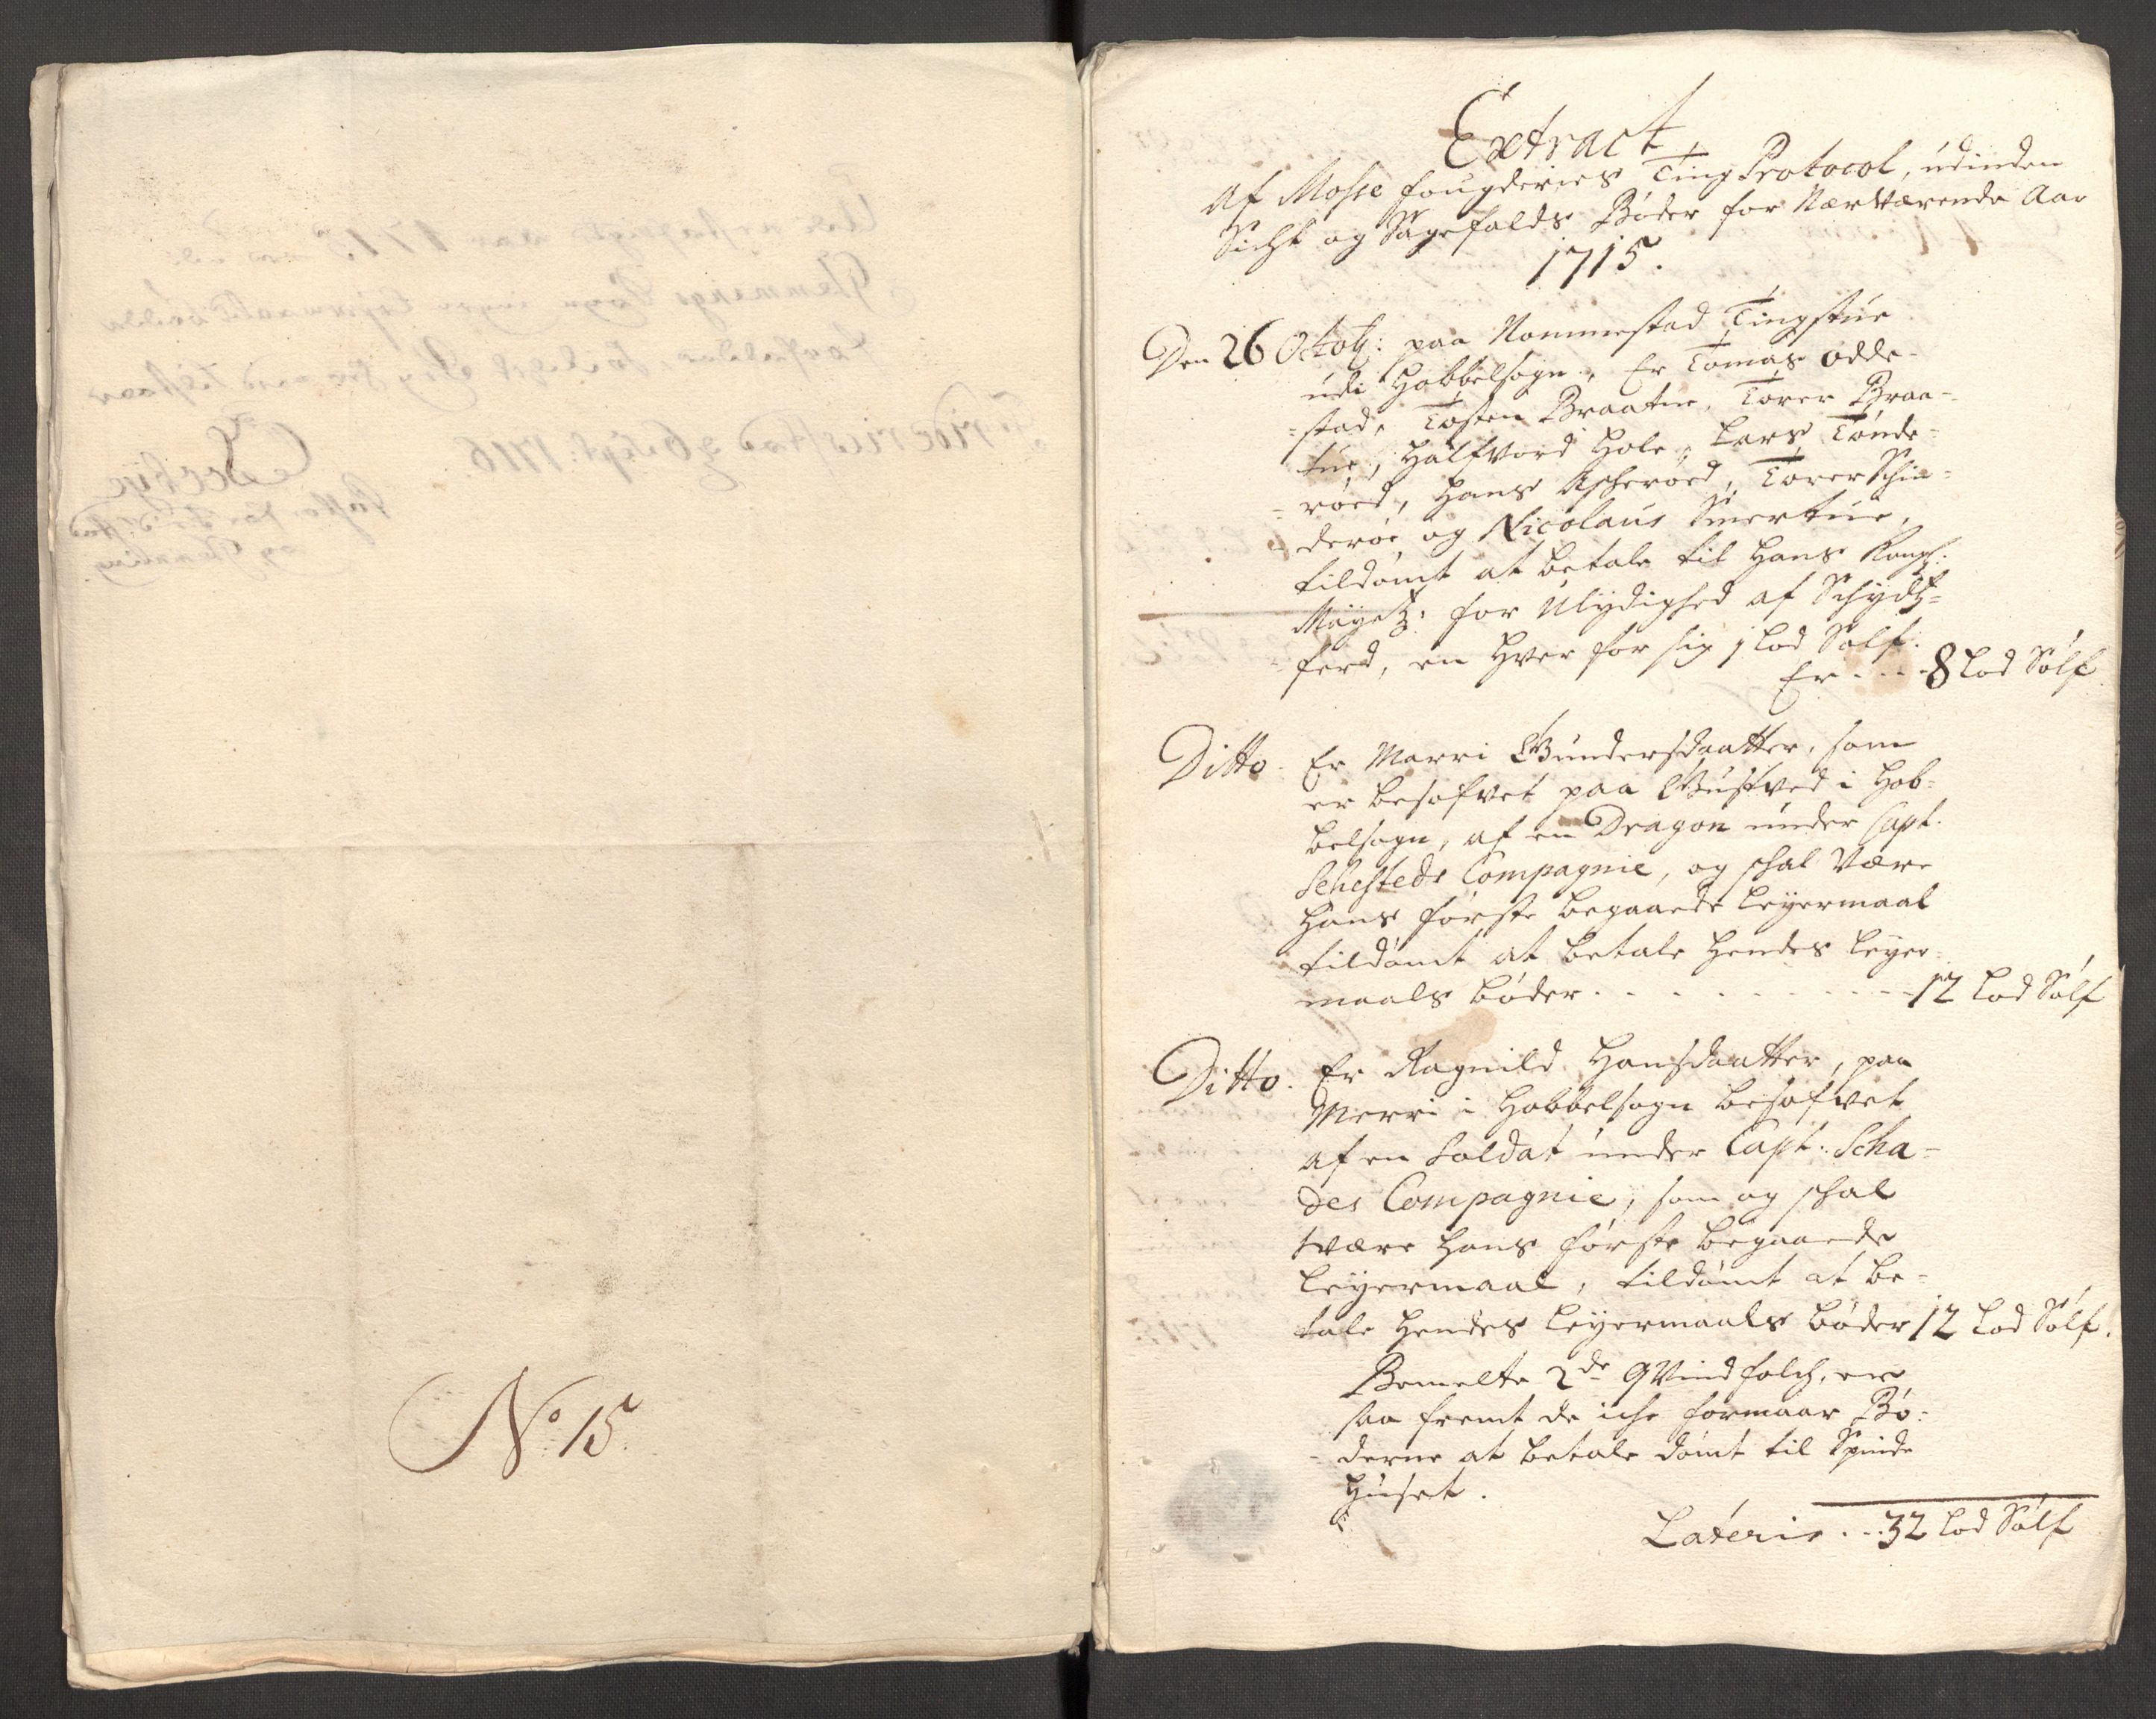 No 15.
Extract
Af Mosse fougderies Ting Protocol, udinden
Sicht og Sagefalds Bøder for Nærværende Aar
1715.
Den 26 Octob: paa Nommestad Tingstue
udi Hobbelsogn, Er Tomas Odde-
=stad, Tosten Braatne, Torer Braa-
tne, Halfvord Hole, Lars Tønde-
=røed, Hans Ascherøed, Torer Schin-
=derøe og Nicolaus Smertue,
tildømt at betale til Hans Kongl:
Mayetz: for Ulydighed af Schydtz=
=ferd, en Hver for sig 1 Lod Sølf.
Er - - - 8 Lod Sølf
Ditto. Er Marri Gundersdaatter, som
er besofvet paa Gustved i Hob=
belsogn, af en Dragon under Capt.
Sehesteds Compagnie, og schal Være
Hans første begaaede Leyermaal
tildømt at betale Hendes Leyer-
maals bøder - - - - - - - 12 Lod Sølf
Ditto. Er Ragnild Hansdaatter, paa
Merri i Hobbelsogn besofvet
af en Soldat under Capt: Scha-
des Compagnie, som og schal
være Hans første begaaede
Leyermaal, tildømt at be-
tale Hendes Leyermaals bøder 12 Lod Sølf.
Bemelte 2de Qvindfolch, er
saa fremt de iche formaar Bø-
=derne at betale dømt til Spinde
Huset.
Lateris - - 32 Lod Sølf